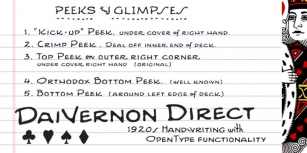 PEEKS & GLIMPSES
1. "Kick-up" Peek. under cover of right hand.
2. Crimp Peek. Deal off inner end of deck.
3. Top Peek on outer right corner.
under cover right hand (original)
4. Orthodox Bottom Peek. (well known)
5. Bottom Peek (around left edge of deck)
DaiVernon Direct
1920s Handwriting with
OpenType functionality